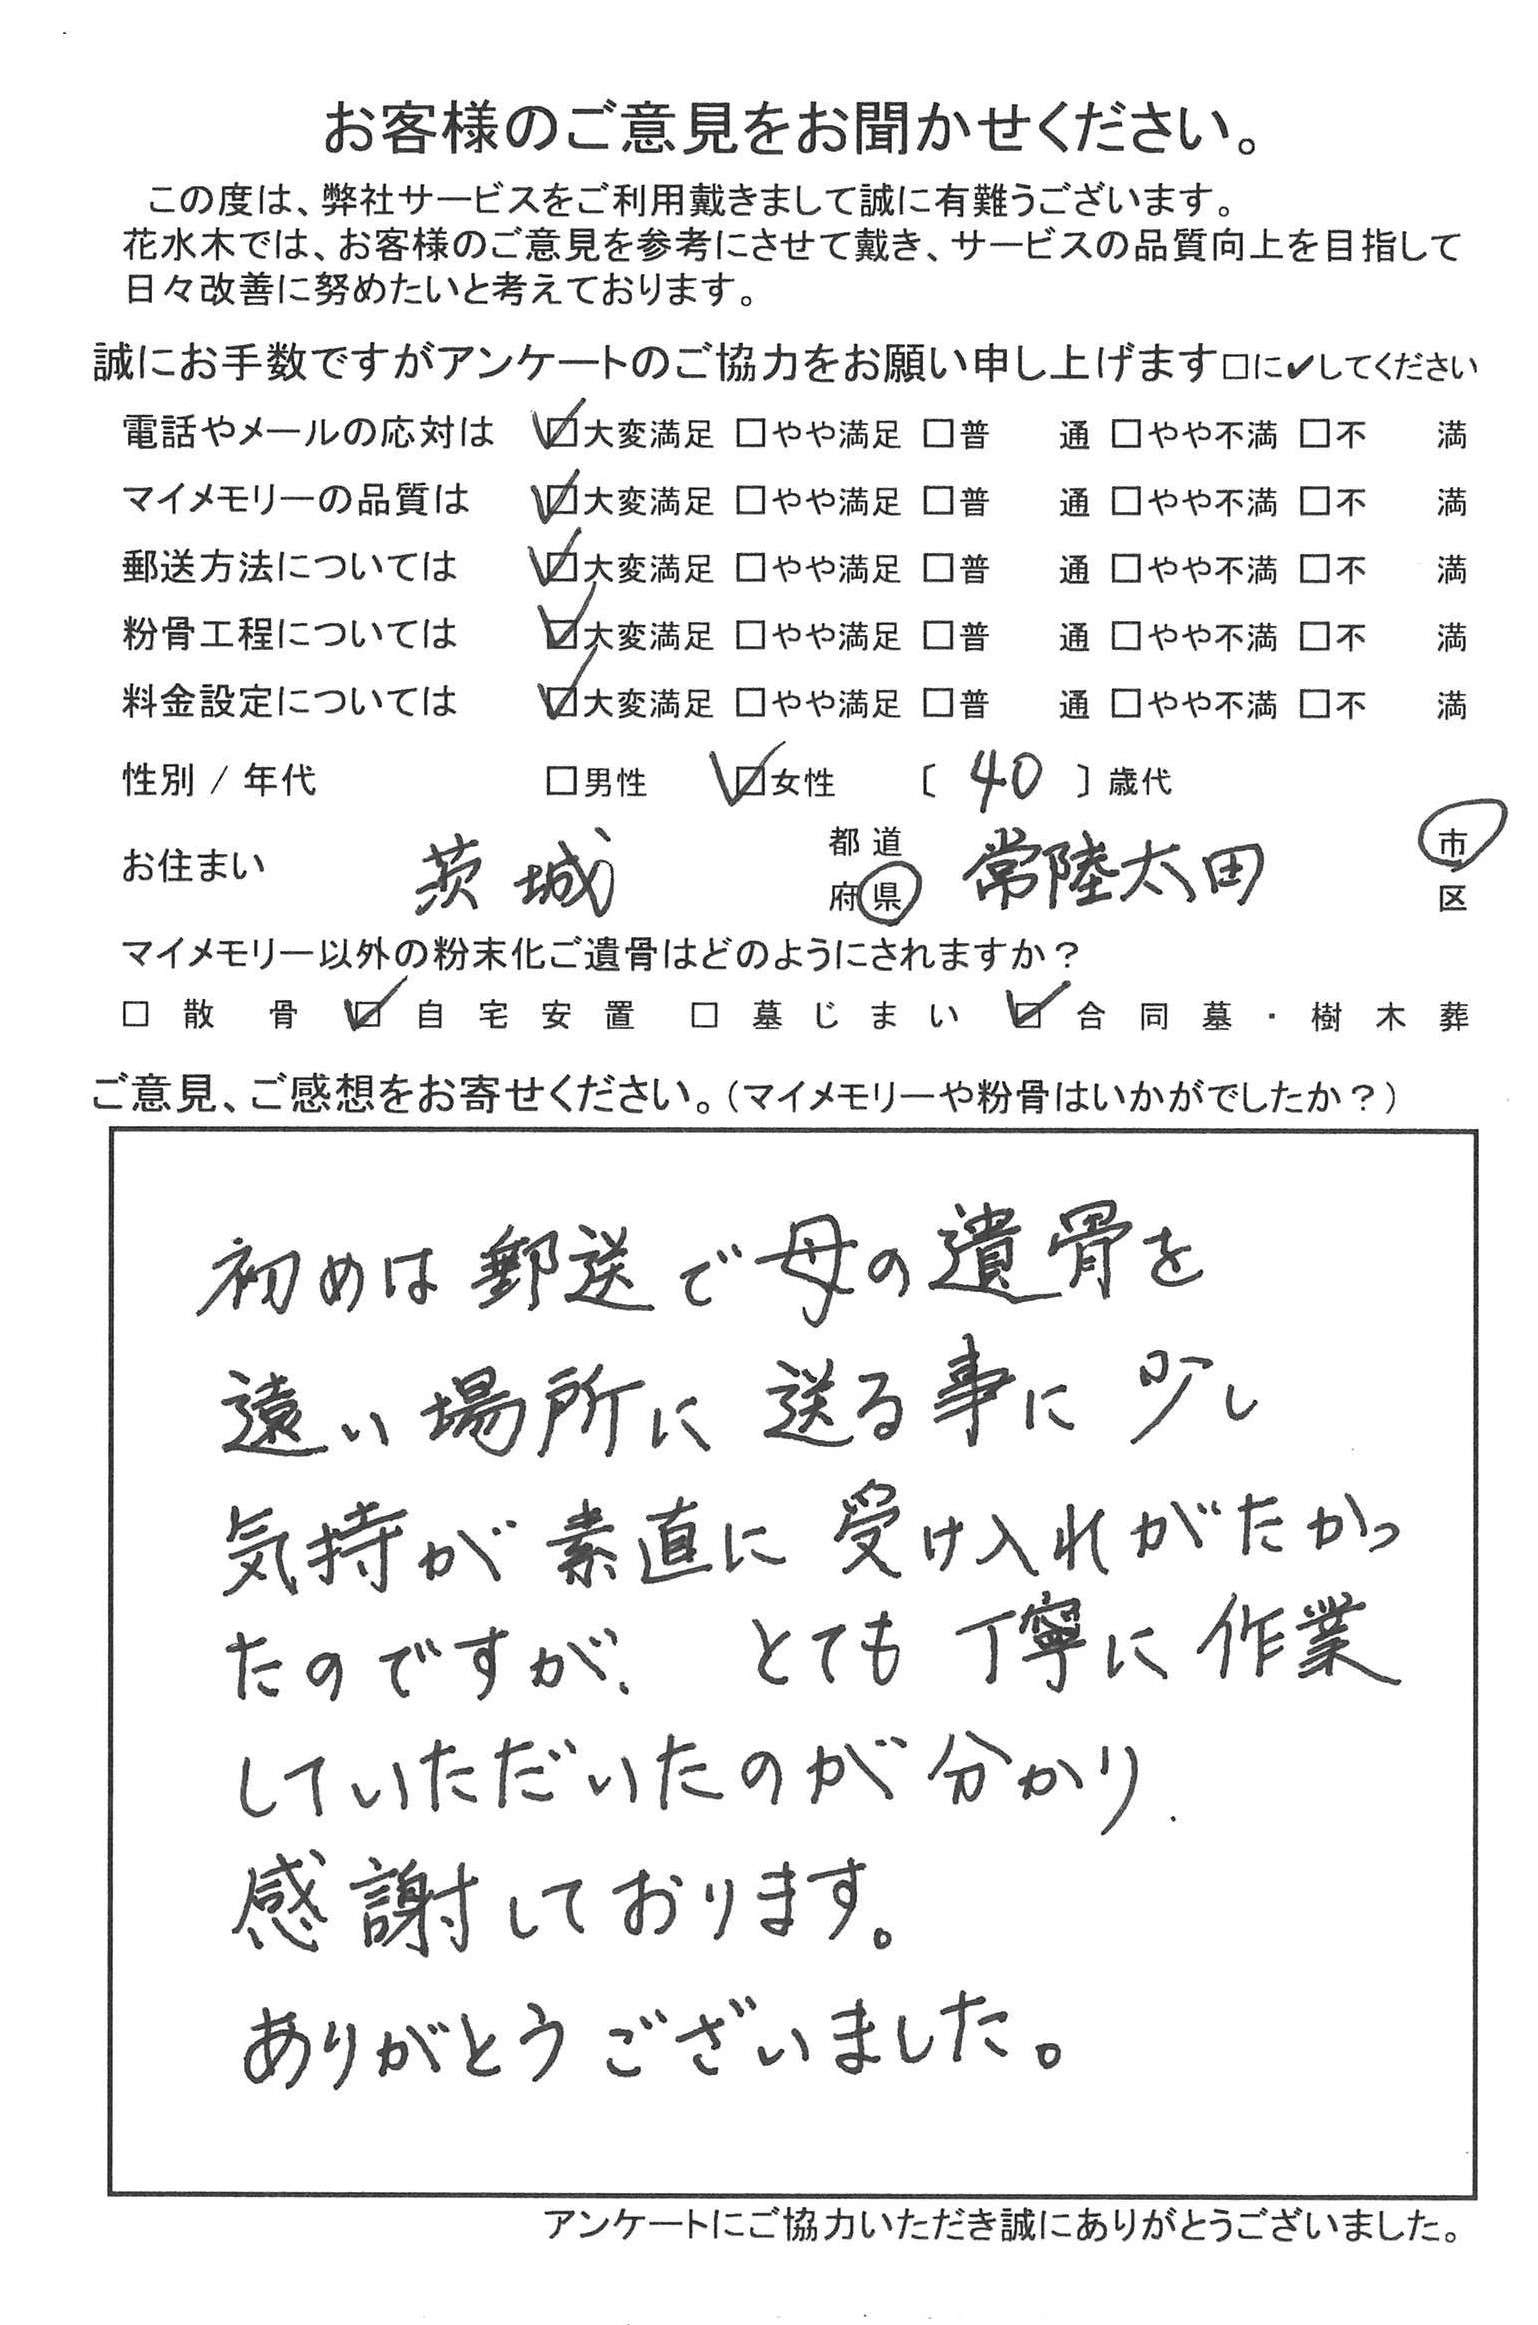 お客様のご意見をお聞かせください。
この度は、弊社サービスをご利用戴きまして誠に有難うございます。
花水木では、お客様のご意見を参考にさせて戴き、サービスの品質向上を目指して
日々改善に努めたいと考えております。
誠にお手数ですがアンケートのご協力をお願い申し上げます□に✔してください
電話やメールの応対は ☑大変満足 □やや満足 □普 通 □やや不満 □不 満
マイメモリーの品質は ☑大変満足 □やや満足 □普 通 □やや不満 □不 満
郵送方法については ☑大変満足 □やや満足 □普 通 □やや不満 □不 満
粉骨工程については ☑大変満足 □やや満足 □普 通 □やや不満 □不 満
料金設定については ☑大変満足 □やや満足 □普 通 □やや不満 □不 満
性別 / 年代 □男性 ☑女性 〔 40 〕歳代
お住まい 茨城 都道府県 常陸太田 市区
マイメモリー以外の粉末化ご遺骨はどのようにされますか？
□ 散骨 ☑ 自宅安置 □ 墓じまい ☑ 合同墓・樹木葬
ご意見、ご感想をお寄せください。（マイメモリーや粉骨はいかがでしたか？）
初めは郵送で母の遺骨を
遠い場所に送る事に少し
気持が素直に受け入れがたかっ
たのですが、とても丁寧に作業
していただいたのが分かり、
感謝しております。
ありがとうございました。
アンケートにご協力いただき誠にありがとうございました。